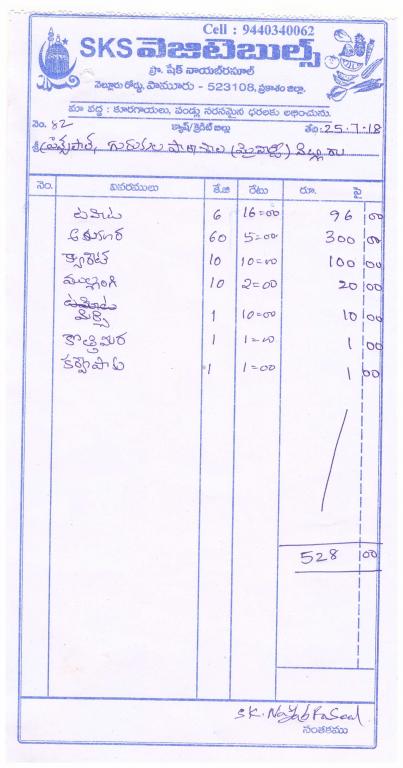 Cell : 9440340062
SKS వెజిటెబుల్స్
ప్రొ. షేక్ నాయబ్‌రసూల్
నెల్లూరు రోడ్డు, పామూరు - 523108, ప్రకాశం జిల్లా.
మా వద్ద : కూరగాయలు, పండ్లు సరసమైన ధరలకు లభించును.
నెం. 82 క్యాష్/క్రెడిట్ బిల్లు తేది: 25-7-18
శ్రీ ప్రిన్సిపాల్, గురుకుల పాఠశాల
నెం. వివరములు కే.జి రేటు రూ. పై
టమోట 6 16=00 96 00
60 5=00 300 00
క్యారెట్ 10 10=00 100 00
ముల్లంగి 10 2=00 20 00
టమోట
మిర్చి 1 10=00 10 00
కొత్తిమీర 1 1=00 1 00
కర్వేపాకు 1 1=00 1 00
528 00
SK. Nayab Rasool
సంతకము